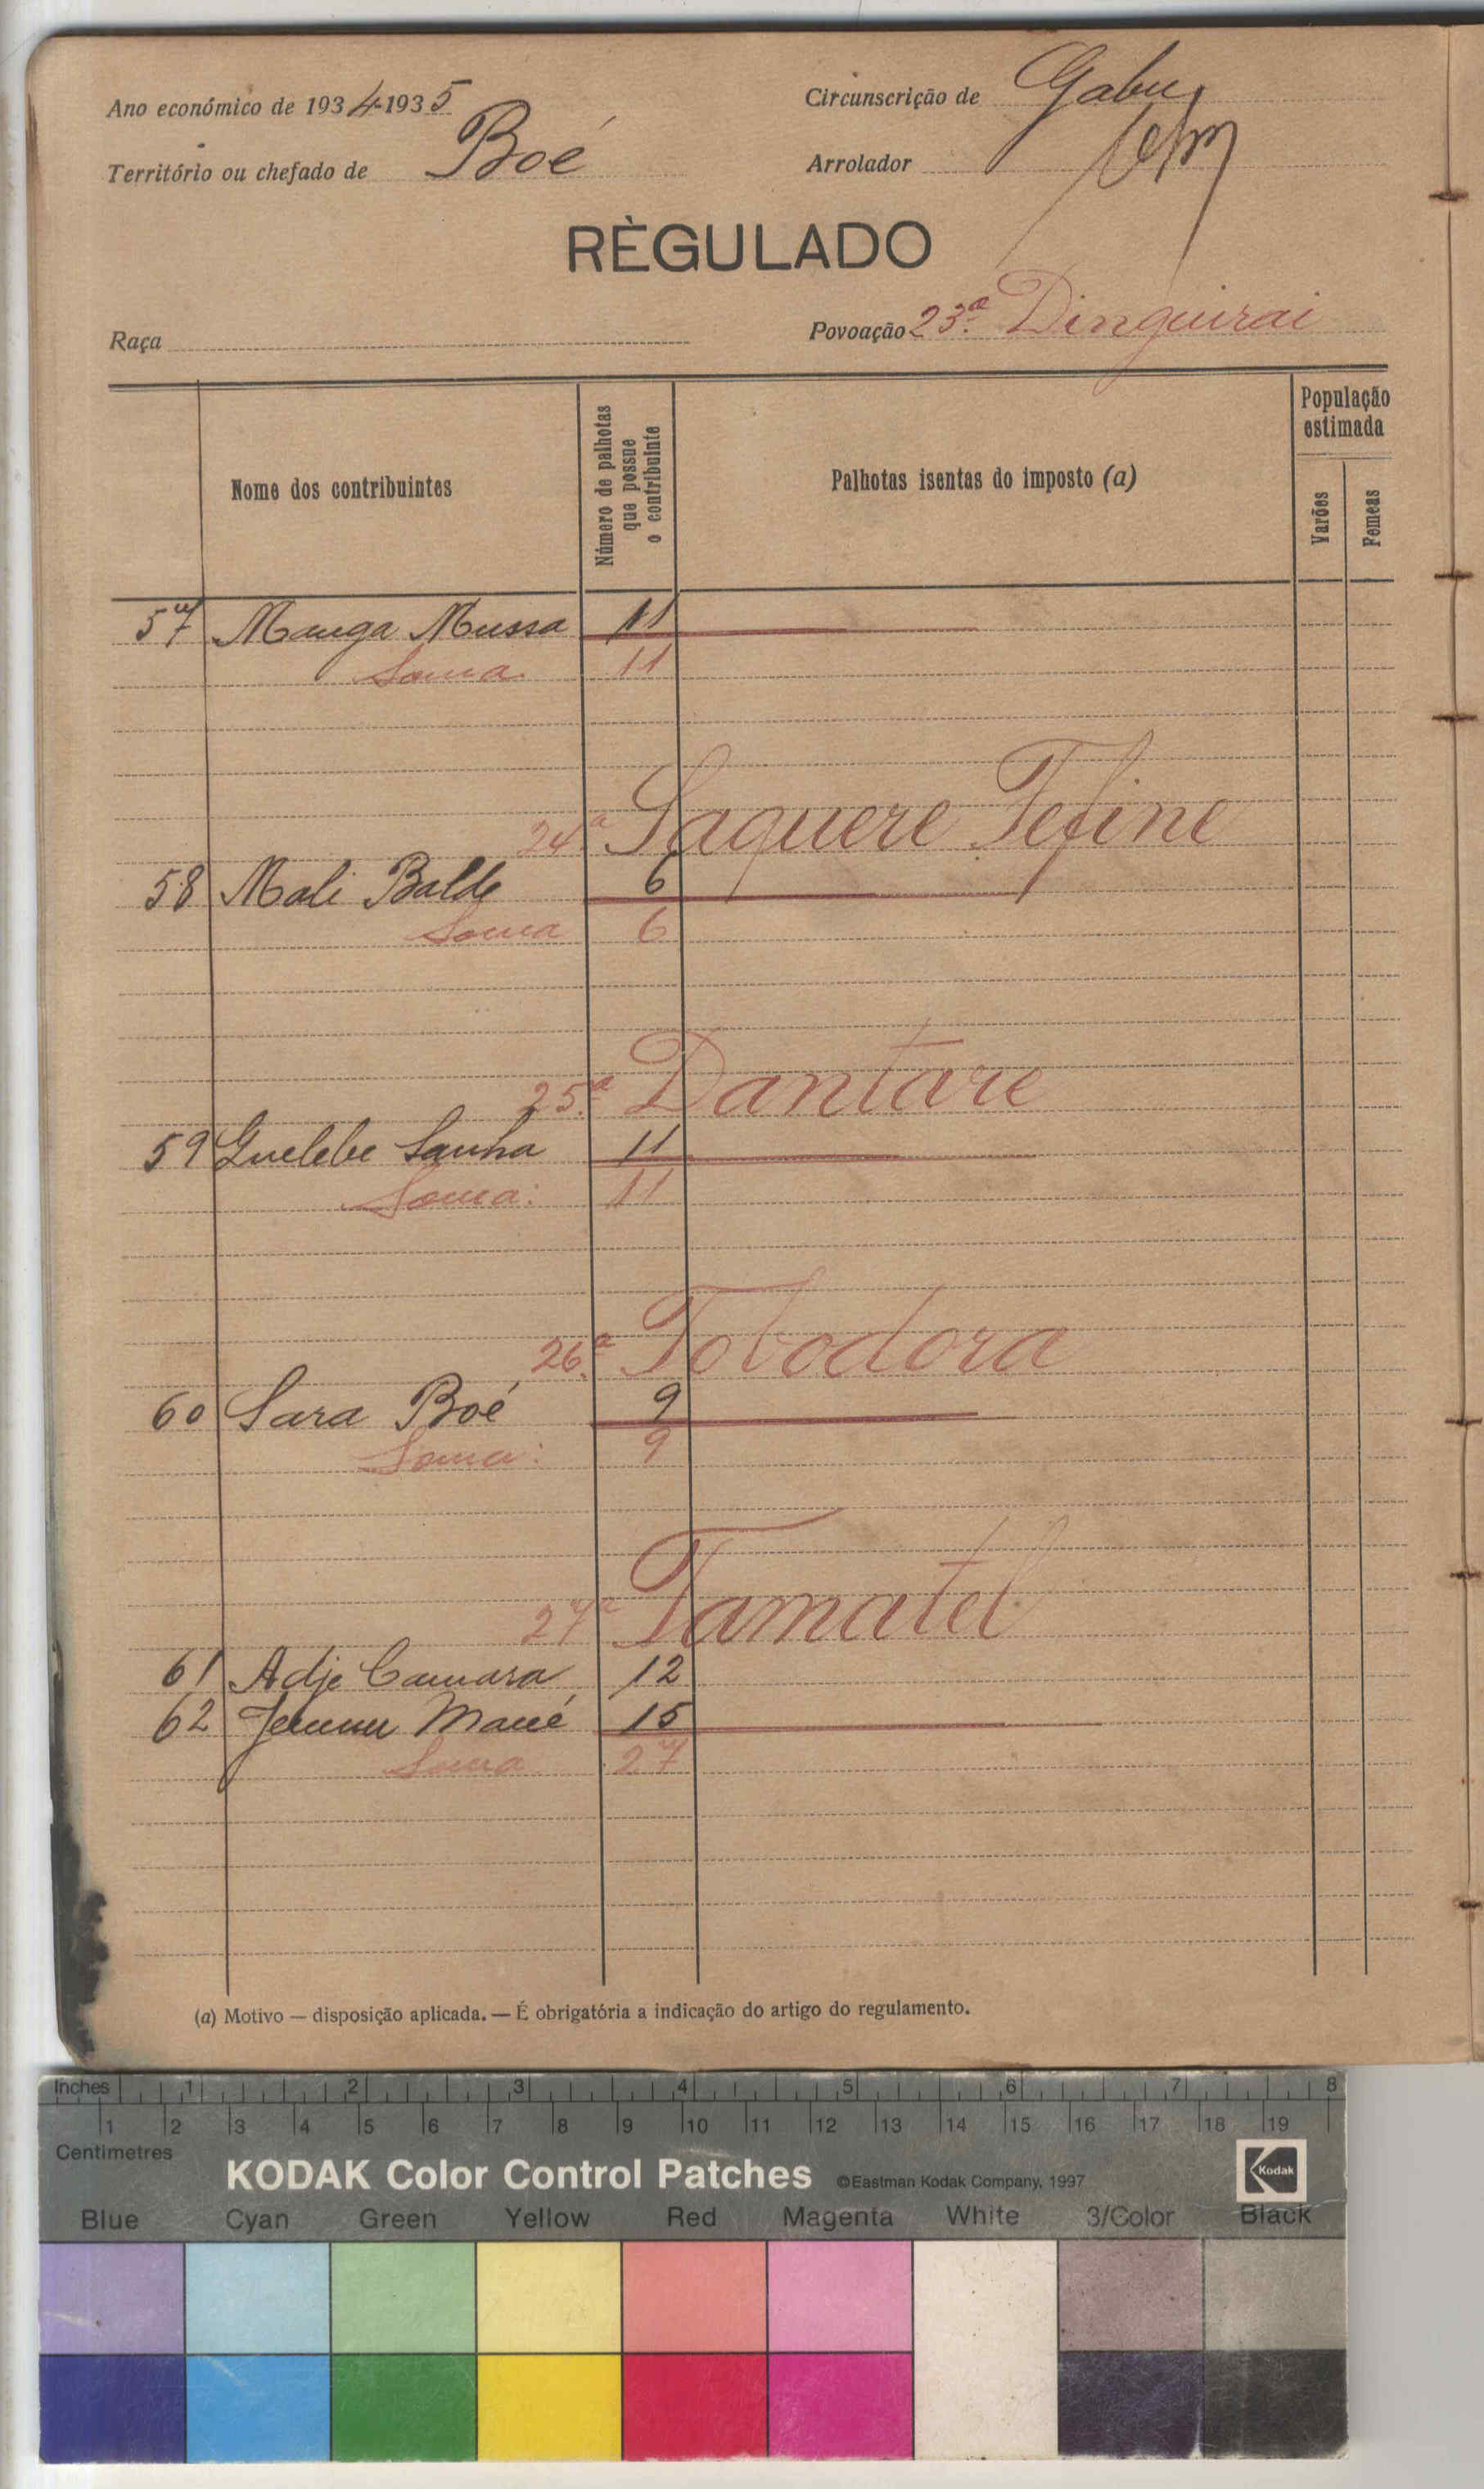 Ano económico de 1934-1935
Circunscrição de Gabu
Território ou chefado de Boé
Arrolador
RÈGULADO
Raça
Povoação 23.ª Dinguirai
Nome dos contribuintes
Número de palhotas que possue o contribuinte
Palhotas isentas do imposto (a)
População estimada
Varões
Femeas
57 Manga Mussa 11
Soma 11
24.ª Saquere Tefine
58 Mali Balde 6
Soma 6
25.ª Dantare
59 Guelebe Sanha 11
Soma: 11
26.ª Tobodora
60 Sara Boé 9
Soma: 9
27.ª Tamatel
61 Adje Camara 12
62 Mané 15
Soma 27
(a) Motivo — disposição aplicada. — É obrigatória a indicação do artigo do regulamento.
Inches 1 2 3 4 5 6 7 8
1 2 3 4 5 6 7 8 9 10 11 12 13 14 15 16 17 18 19
Centimetres
KODAK Color Control Patches ©Eastman Kodak Company, 1997
Kodak
Blue Cyan Green Yellow Red Magenta White 3/Color Black